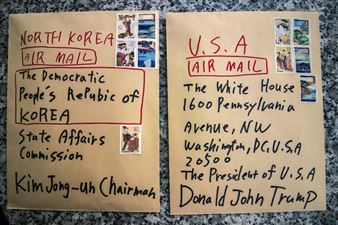 NORTH KOREA
AIR MAIL
The Democratic
People's Repubic of
KOREA
State Affairs
Commission
Kim Jong-un Chairman
U.S.A
AIR MAIL
The White House
1600 Pennsylvania
Avenue, NW
Washington, DC, U.S.A
20500
The President of U.S.A
Donald John Trump